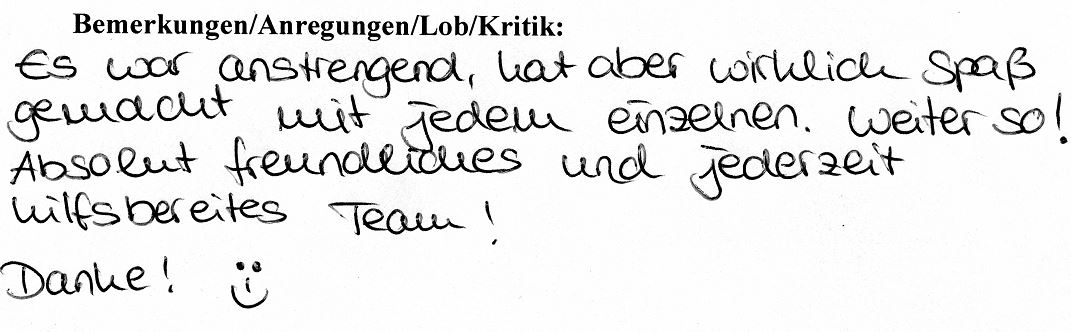 Bemerkungen/Anregungen/Lob/Kritik:
Es war anstrengend, hat aber wirklich Spaß
gemacht mit jedem einzelnen. Weiter so!
Absolut freundliches und jederzeit
hilfsbereites Team!
Danke!